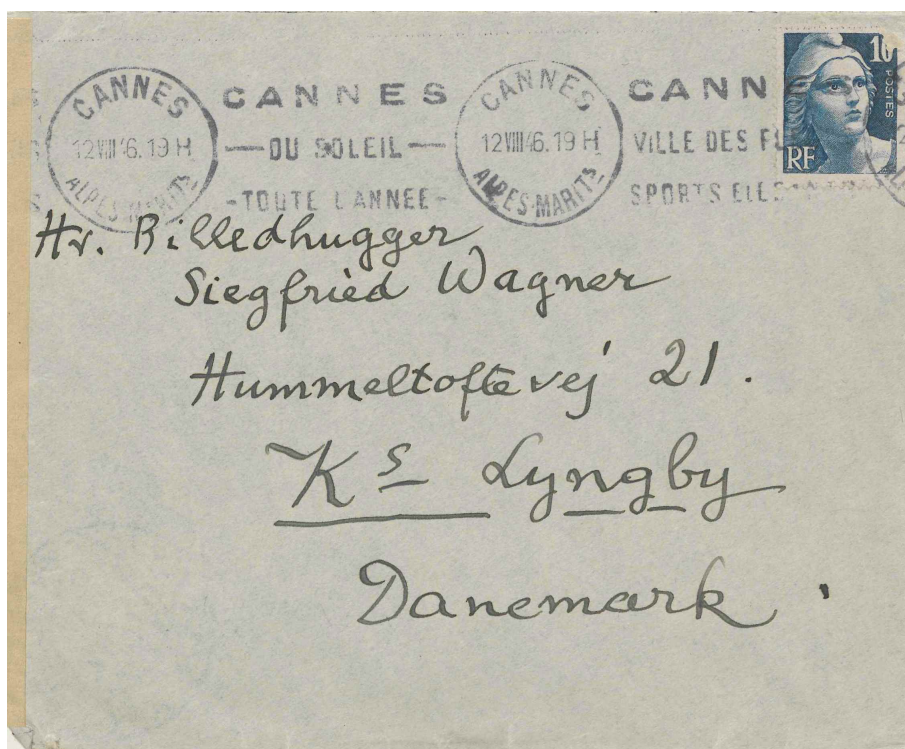 CANNES
12 VIII 46. 19 H
ALPES-MARITS
CANNES
DU SOLEIL
-TOUTE L'ANNEE-
CANNES
12 VIII 46. 19 H
ALPES-MARITS
CANN
VILLE DES FL
SPORTS ELEG
10
POSTES
RF
Hr. Billedhugger
Siegfried Wagner
Hummeltoftevej 21.
Ks Lyngby
Danemark.